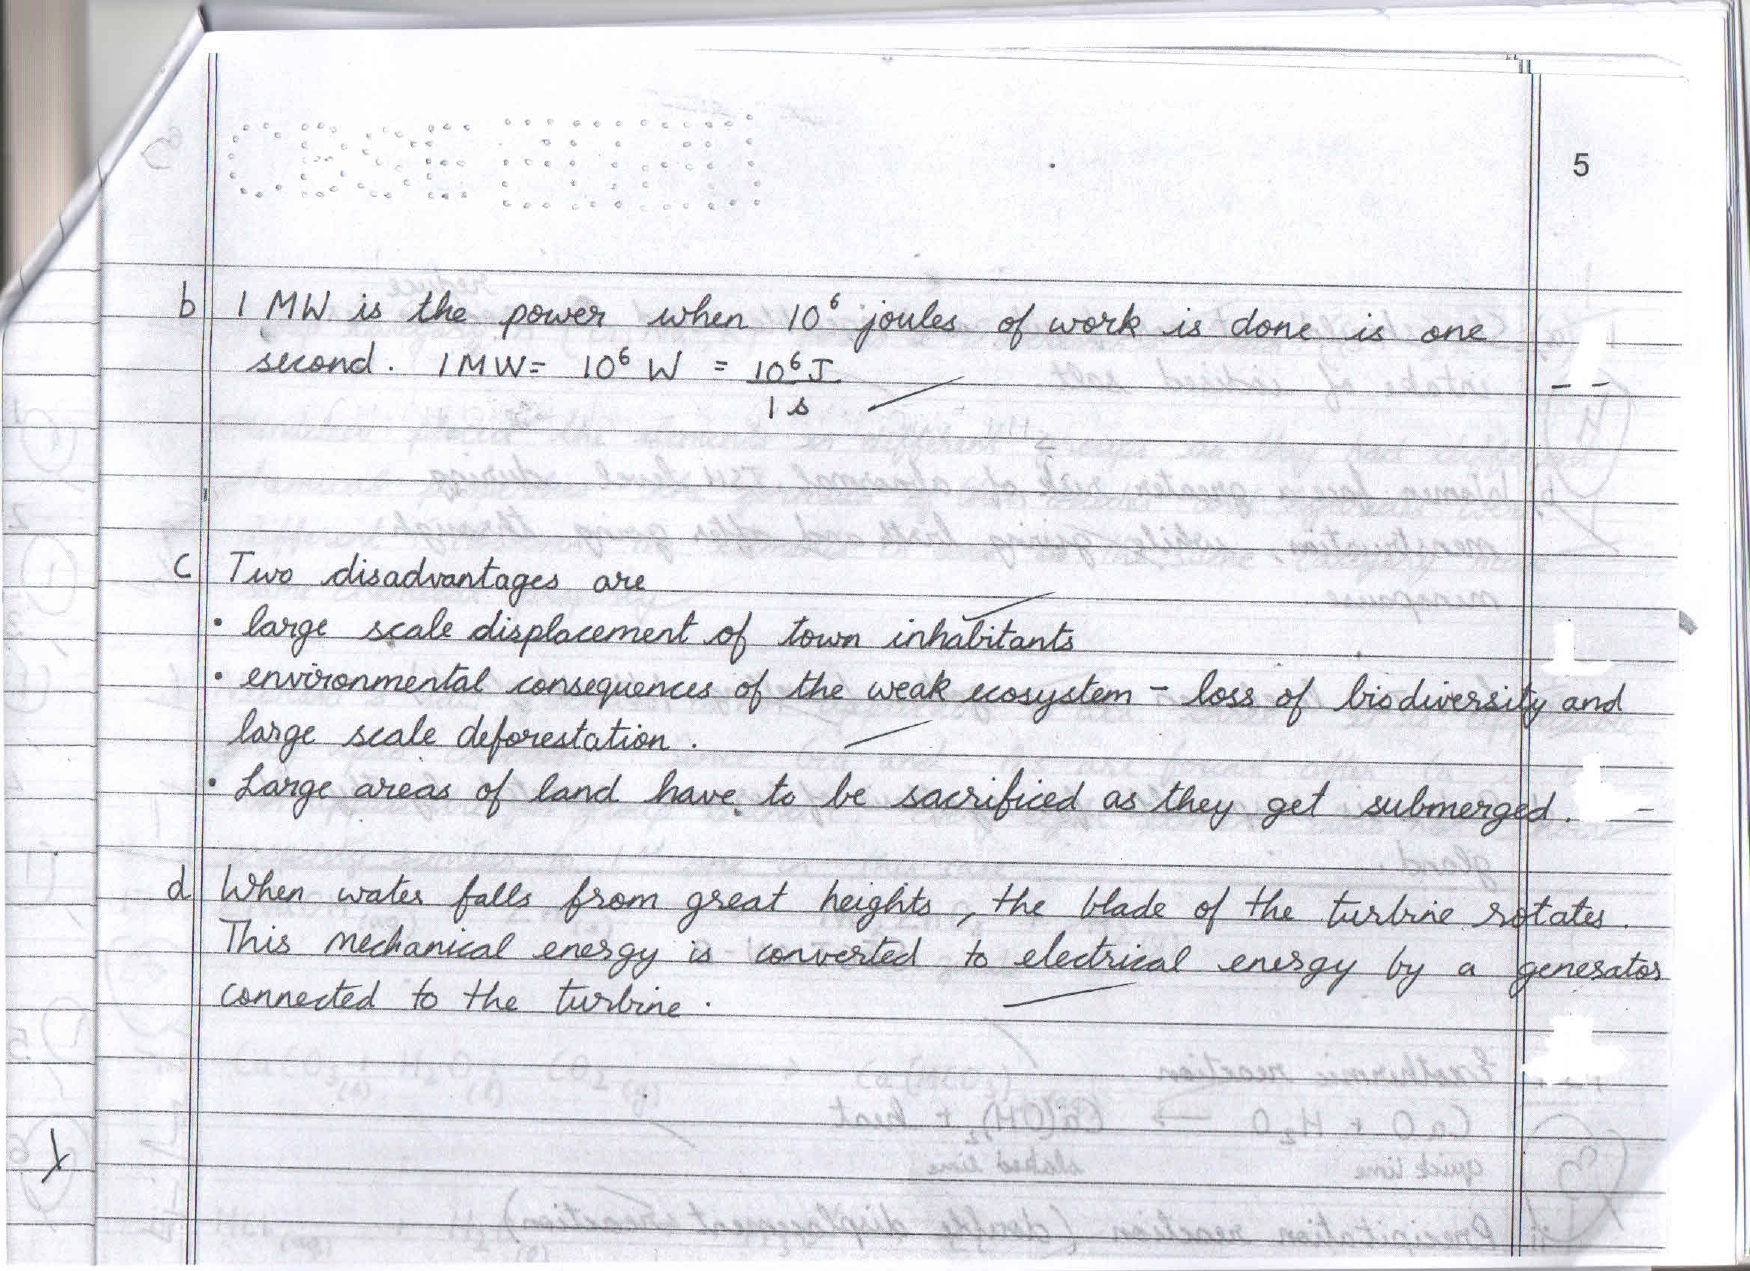 5
b 1 MW is the power when 10⁶ joules of work is done is one
second. 1 MW = 10⁶ W = 10⁶ J / 1 s
c Two disadvantages are
• large scale displacement of town inhabitants
• environmental consequences of the weak ecosystem – loss of biodiversity and
large scale deforestation.
• Large areas of land have to be sacrificed as they get submerged.
d When water falls from great heights, the blade of the turbine rotates.
This mechanical energy is converted to electrical energy by a generator
connected to the turbine.